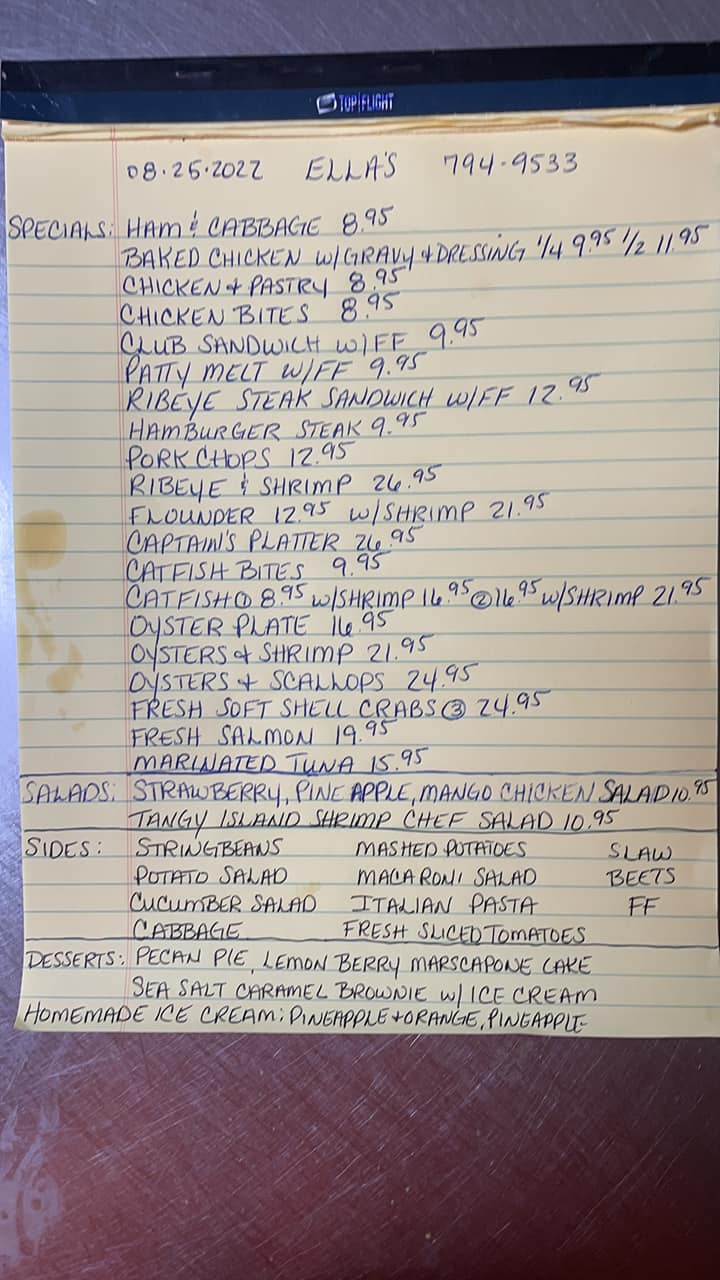 TOP FLIGHT
08.25.2022 ELLA'S 794-9533
SPECIALS: HAM & CABBAGE 8.95
BAKED CHICKEN W/GRAVY & DRESSING 1/4 9.95 1/2 11.95
CHICKEN & PASTRY 8.95
CHICKEN BITES 8.95
CLUB SANDWICH W/FF 9.95
PATTY MELT W/FF 9.95
RIBEYE STEAK SANDWICH W/FF 12.95
HAMBURGER STEAK 9.95
PORK CHOPS 12.95
RIBEYE & SHRIMP 26.95
FLOUNDER 12.95 W/SHRIMP 21.95
CAPTAIN'S PLATTER 26.95
CATFISH BITES 9.95
CATFISH ① 8.95 W/SHRIMP 16.95 ② 16.95 W/SHRIMP 21.95
OYSTER PLATE 16.95
OYSTERS & SHRIMP 21.95
OYSTERS & SCALLOPS 24.95
FRESH SOFT SHELL CRABS ③ 24.95
FRESH SALMON 19.95
MARINATED TUNA 15.95
SALADS: STRAWBERRY, PINEAPPLE, MANGO CHICKEN SALAD 10.95
TANGY ISLAND SHRIMP CHEF SALAD 10.95
SIDES: STRINGBEANS MASHED POTATOES SLAW
POTATO SALAD MACARONI SALAD BEETS
CUCUMBER SALAD ITALIAN PASTA FF
CABBAGE FRESH SLICED TOMATOES
DESSERTS: PECAN PIE, LEMON BERRY MARSCAPONE CAKE
SEA SALT CARAMEL BROWNIE W/ ICE CREAM
HOMEMADE ICE CREAM: PINEAPPLE & ORANGE, PINEAPPLE